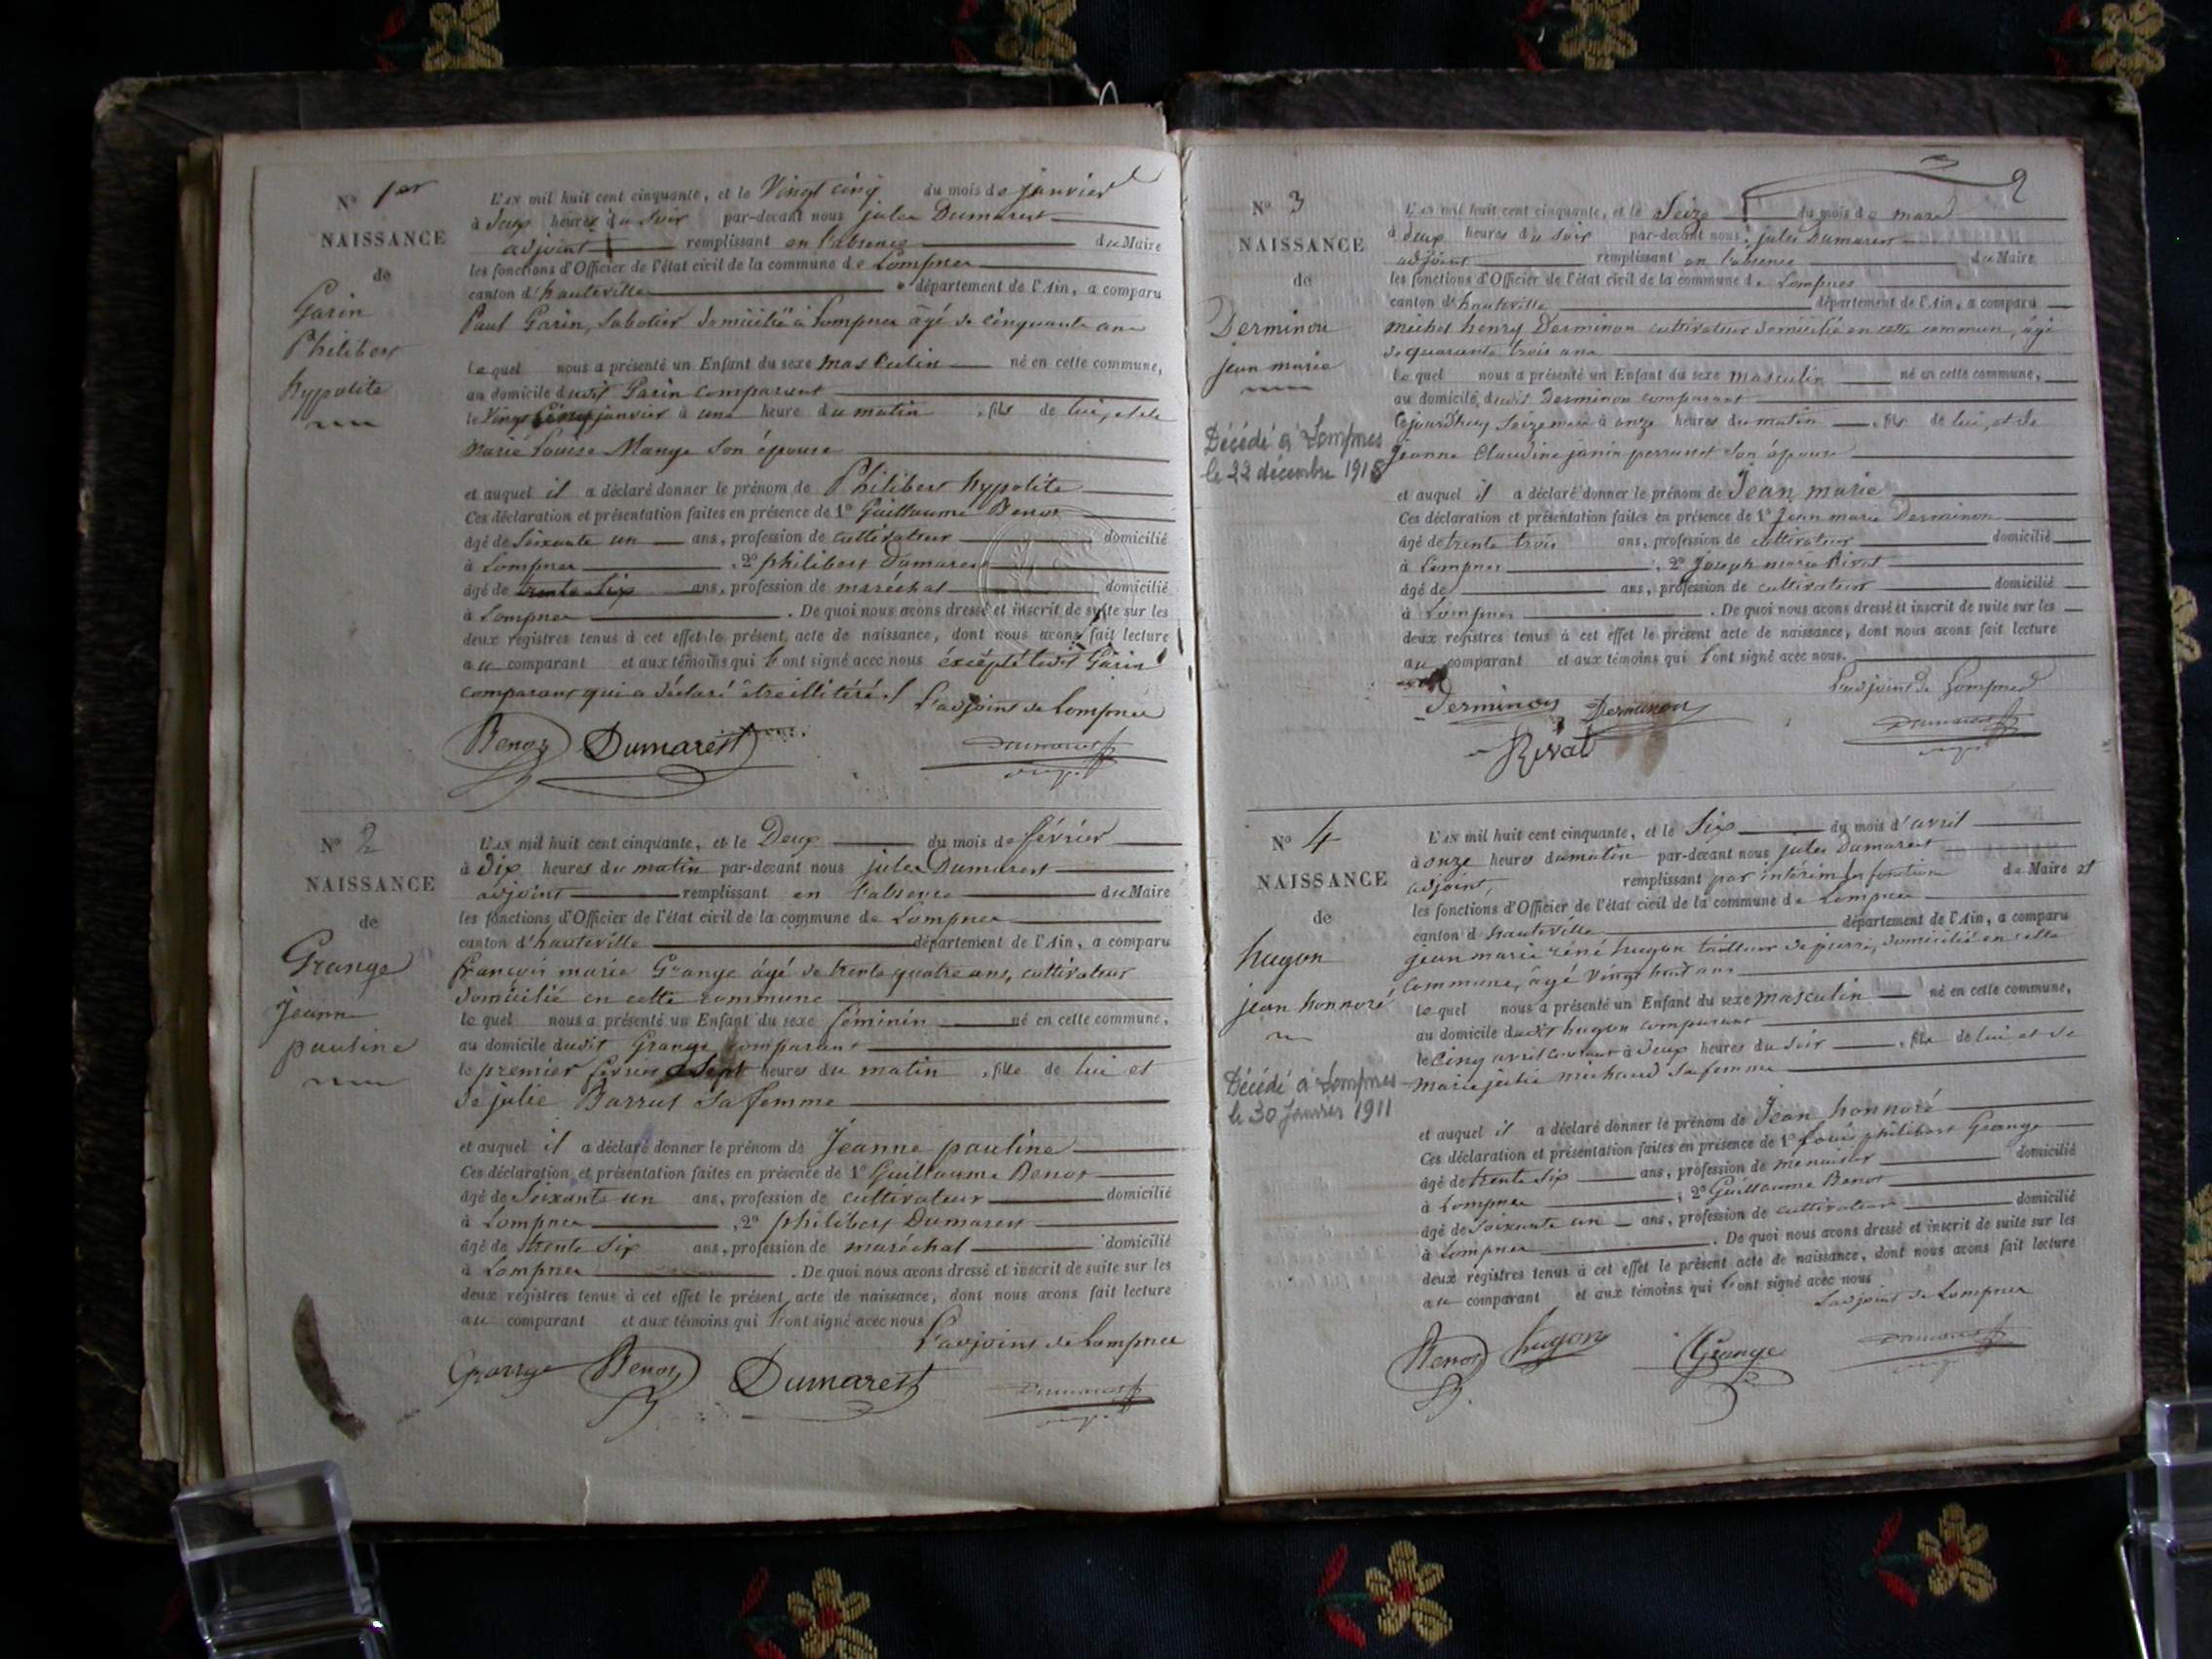 N° 1er
NAISSANCE
de
Garin
Philibert
hypolite
L'AN mil huit cent cinquante, et le Vingt cinq du mois de janvier
à deux heures du soir par-devant nous jules Dumarest
adjoint remplissant en l'absence du Maire
les fonctions d'Officier de l'état civil de la commune de Lompnes
canton d'hauteville département de l'Ain, a comparu
Paul Garin, Sabotier domicilié à Lompnes âgé de cinquante ans
lequel nous a présenté un Enfant du sexe masculin né en cette commune,
au domicile dudit Garin comparant
le Vingt Cinq janvier à une heure du matin, fils de lui, et de
Marie Louise Mange son épouse
et auquel il a déclaré donner le prénom de Philibert hypolite
Ces déclaration et présentation faites en présence de 1° Guillaume Benoz
âgé de Soixante un ans, profession de cultivateur domicilié
à Lompnes, 2° philibert Dumarest
âgé de trente six ans, profession de maréchal domicilié
à Lompnes. De quoi nous avons dressé et inscrit de suite sur les
deux registres tenus à cet effet le présent acte de naissance, dont nous avons fait lecture
au comparant et aux témoins qui l'ont signé avec nous éxcépté ledit Garin
comparant qui a déclaré être illitéré.
L'adjoint de Lompnes
Benoz Dumarest Dumarest
N° 2
NAISSANCE
de
Grange
Jeanne
pauline
L'AN mil huit cent cinquante, et le Deux du mois de février
à Dix heures du matin par-devant nous jules Dumarest
adjoint remplissant en l'absence du Maire
les fonctions d'Officier de l'état civil de la commune de Lompnes
canton d'hauteville département de l'Ain, a comparu
françois marie Grange âgé de trente quatre ans, cultivateur
domicilié en cette commune
lequel nous a présenté un Enfant du sexe féminin né en cette commune,
au domicile dudit Grange comparant
le premier février à Sept heures du matin, fille de lui et
de julie Barrut sa femme
et auquel il a déclaré donner le prénom de Jeanne pauline
Ces déclaration et présentation faites en présence de 1° Guillaume Benoz
âgé de Soixante un ans, profession de cultivateur domicilié
à Lompnes, 2° philibert Dumarest
âgé de trente six ans, profession de maréchal domicilié
à Lompnes. De quoi nous avons dressé et inscrit de suite sur les
deux registres tenus à cet effet le présent acte de naissance, dont nous avons fait lecture
au comparant et aux témoins qui l'ont signé avec nous
L'adjoint de Lompnes
Grange Benoz Dumarest Dumarest
2
N° 3
NAISSANCE
de
Derminon
jean marie
Décédé à Lompnes
le 22 décembre 1918
L'AN mil huit cent cinquante, et le Seize du mois de mars
à deux heures du soir par-devant nous jules Dumarest
adjoint remplissant en l'absence du Maire
les fonctions d'Officier de l'état civil de la commune de Lompnes
canton d'hauteville département de l'Ain, a comparu
michel henry Derminon cultivateur domicilié en cette commune, âgé
de quarante trois ans
lequel nous a présenté un Enfant du sexe masculin né en cette commune,
au domicile dudit Derminon comparant
cejourdhuy Seize mars à onze heures du matin, fils de lui, et de
jeanne Claudine janin perrusset son épouse
et auquel il a déclaré donner le prénom de Jean marie
Ces déclaration et présentation faites en présence de 1° Jean marie Derminon
âgé de trente trois ans, profession de cultivateur domicilié
à Lompnes, 2° Joseph marie Rivat
âgé de ans, profession de cultivateur domicilié
à Lompnes. De quoi nous avons dressé et inscrit de suite sur les
deux registres tenus à cet effet le présent acte de naissance, dont nous avons fait lecture
au comparant et aux témoins qui l'ont signé avec nous.
L'adjoint de Lompnes
Derminon Derminon Dumarest
Rivat
N° 4
NAISSANCE
de
hugon
jean honnoré
Décédé à Lompnes
le 30 Janvier 1911
L'AN mil huit cent cinquante, et le Six du mois d'avril
à onze heures du matin par-devant nous jules Dumarest
adjoint, remplissant par intérim les fonctions de Maire et
les fonctions d'Officier de l'état civil de la commune de Lompnes
canton d'hauteville département de l'Ain, a comparu
jean marie réné hugon tailleur de pierre, domicilié en cette
Commune, âgé Vingt huit ans
lequel nous a présenté un Enfant du sexe masculin né en cette commune,
au domicile dudit hugon comparant
le Cinq avril courant à deux heures du soir, fils de lui et de
marie julie michaud sa femme
et auquel il a déclaré donner le prénom de Jean honnoré
Ces déclaration et présentation faites en présence de 1° Louis philibert Grange
âgé de trente six ans, profession de menuisier domicilié
à Lompnes, 2° Guillaume Benoz
âgé de Soixante un ans, profession de cultivateur domicilié
à Lompnes. De quoi nous avons dressé et inscrit de suite sur les
deux registres tenus à cet effet le présent acte de naissance, dont nous avons fait lecture
au comparant et aux témoins qui l'ont signé avec nous
L'adjoint de Lompnes
Benoz hugon Grange Dumarest